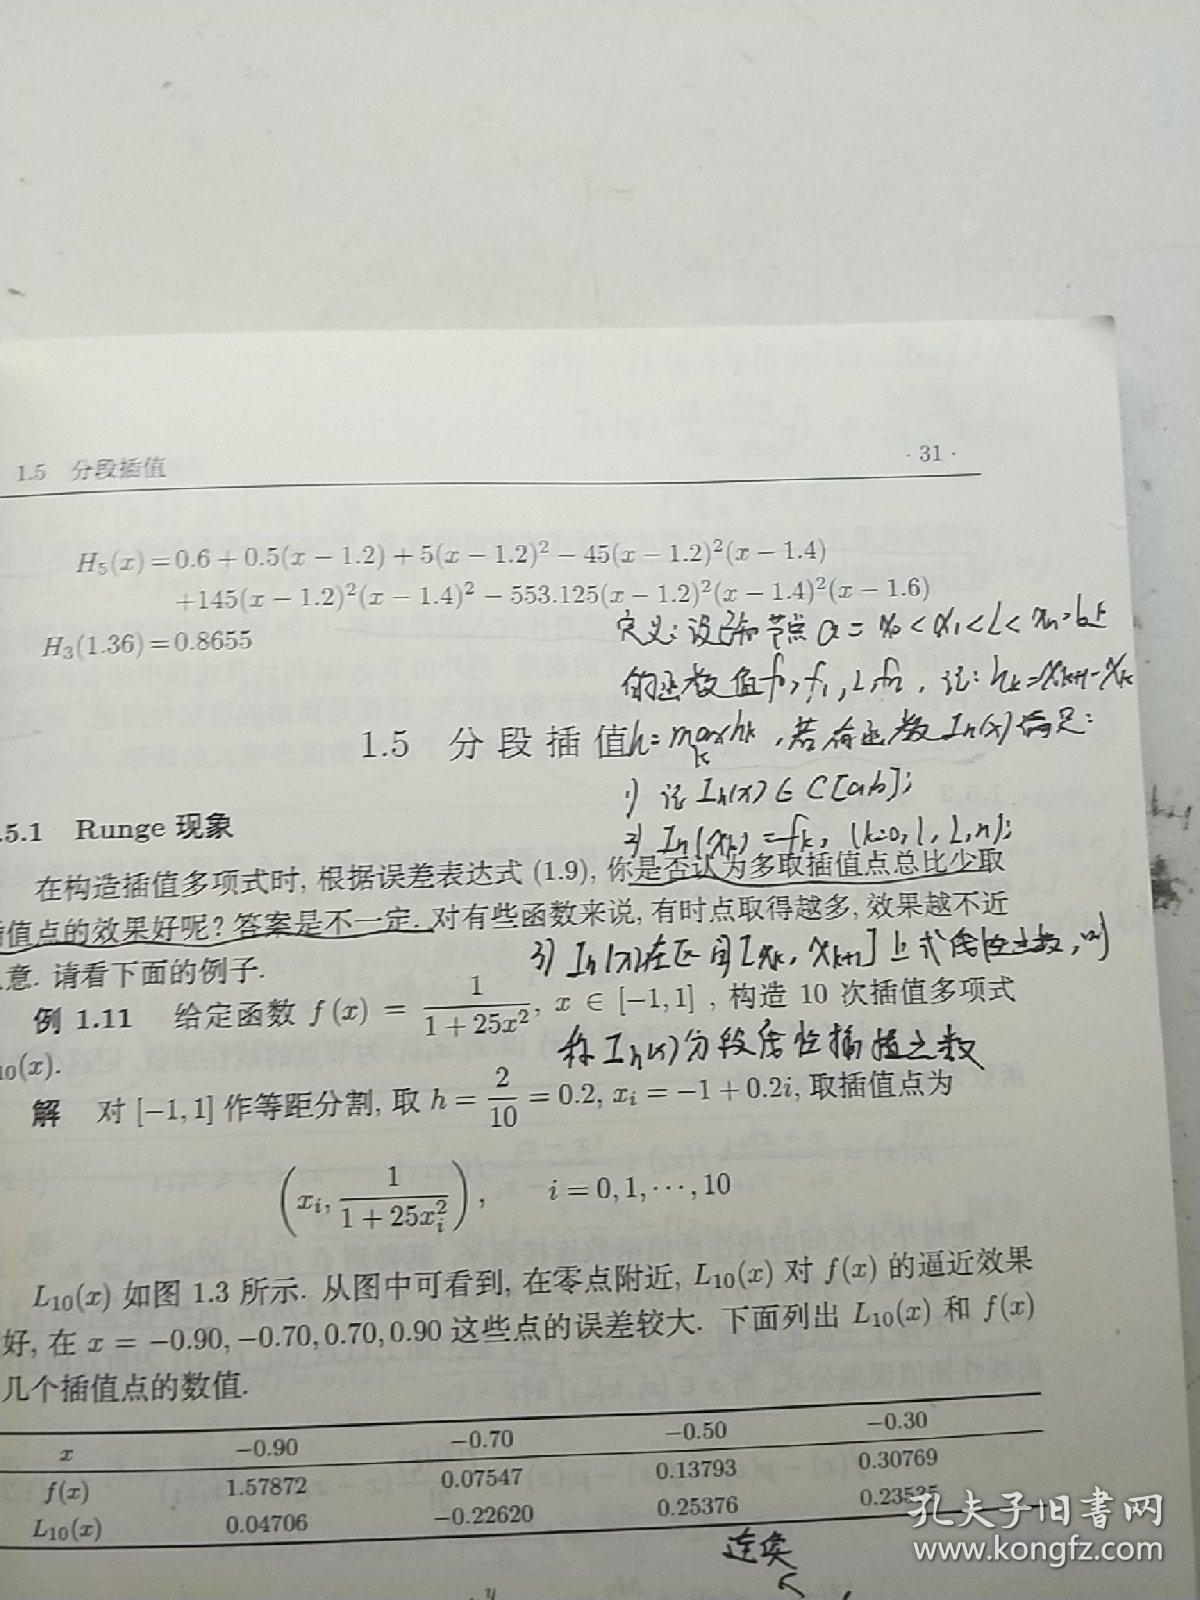 1.5 分段插值 · 31 ·
H₅(x)=0.6+0.5(x−1.2)+5(x−1.2)²−45(x−1.2)²(x−1.4)
+145(x−1.2)²(x−1.4)²−553.125(x−1.2)²(x−1.4)²(x−1.6)
H₃(1.36)=0.8655
定义:设已知节点 a=x₀<x₁<L<xₙ=b上
的函数值f₀,f₁,L,fₙ,记:hₖ=xₖ₊₁-xₖ
1.5 分段插值
h=max hₖ,若有函数Iₕ(x)满足:
k
1) 记Iₕ(x)∈C[a,b];
2) Iₕ(xₖ)=fₖ, (k=0,1,L,n);
.5.1 Runge 现象
在构造插值多项式时, 根据误差表达式 (1.9), 你是否认为多取插值点总比少取
值点的效果好呢? 答案是不一定. 对有些函数来说, 有时点取得越多, 效果越不近
意. 请看下面的例子.
3) Iₕ(x)在区间[xₖ, xₖ₊₁]上
例 1.11 给定函数 f(x) = 1/(1+25x²), x ∈ [−1,1] , 构造 10 次插值多项式
称Iₕ(x)分段线性插值函数
₁₀(x).
解 对 [−1,1] 作等距分割, 取 h = 2/10 = 0.2, xᵢ = −1+0.2i, 取插值点为
(xᵢ, 1/(1+25xᵢ²)), i=0,1,⋯,10
L₁₀(x) 如图 1.3 所示. 从图中可看到, 在零点附近, L₁₀(x) 对 f(x) 的逼近效果
好, 在 x = −0.90, −0.70, 0.70, 0.90 这些点的误差较大. 下面列出 L₁₀(x) 和 f(x)
几个插值点的数值.
x −0.90 −0.70 −0.50 −0.30
f(x) 1.57872 0.07547 0.13793 0.30769
L₁₀(x) 0.04706 −0.22620 0.25376 0.23535
连续
y
孔夫子旧书网
www.kongfz.com